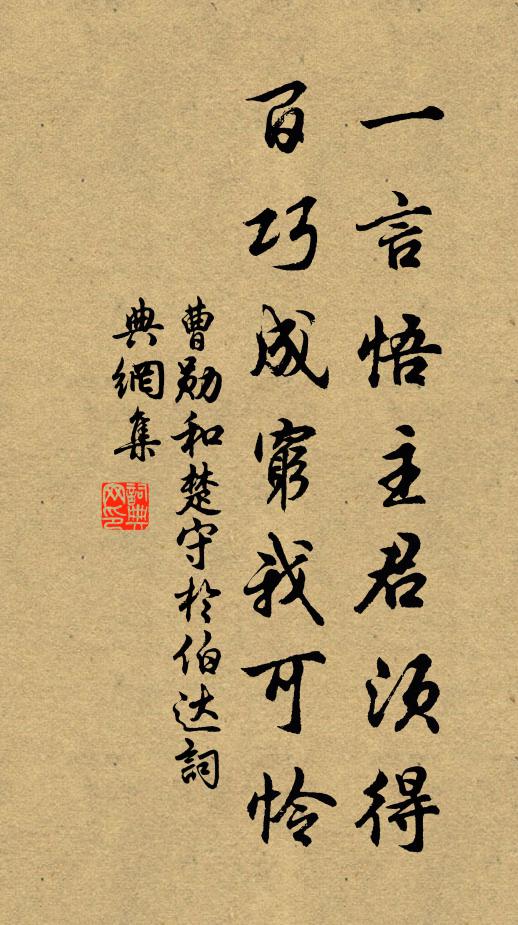 一言悟主君須得
百巧成窮我可怜
曹勛和楚守於伯达詞
典網集
詞典
网印